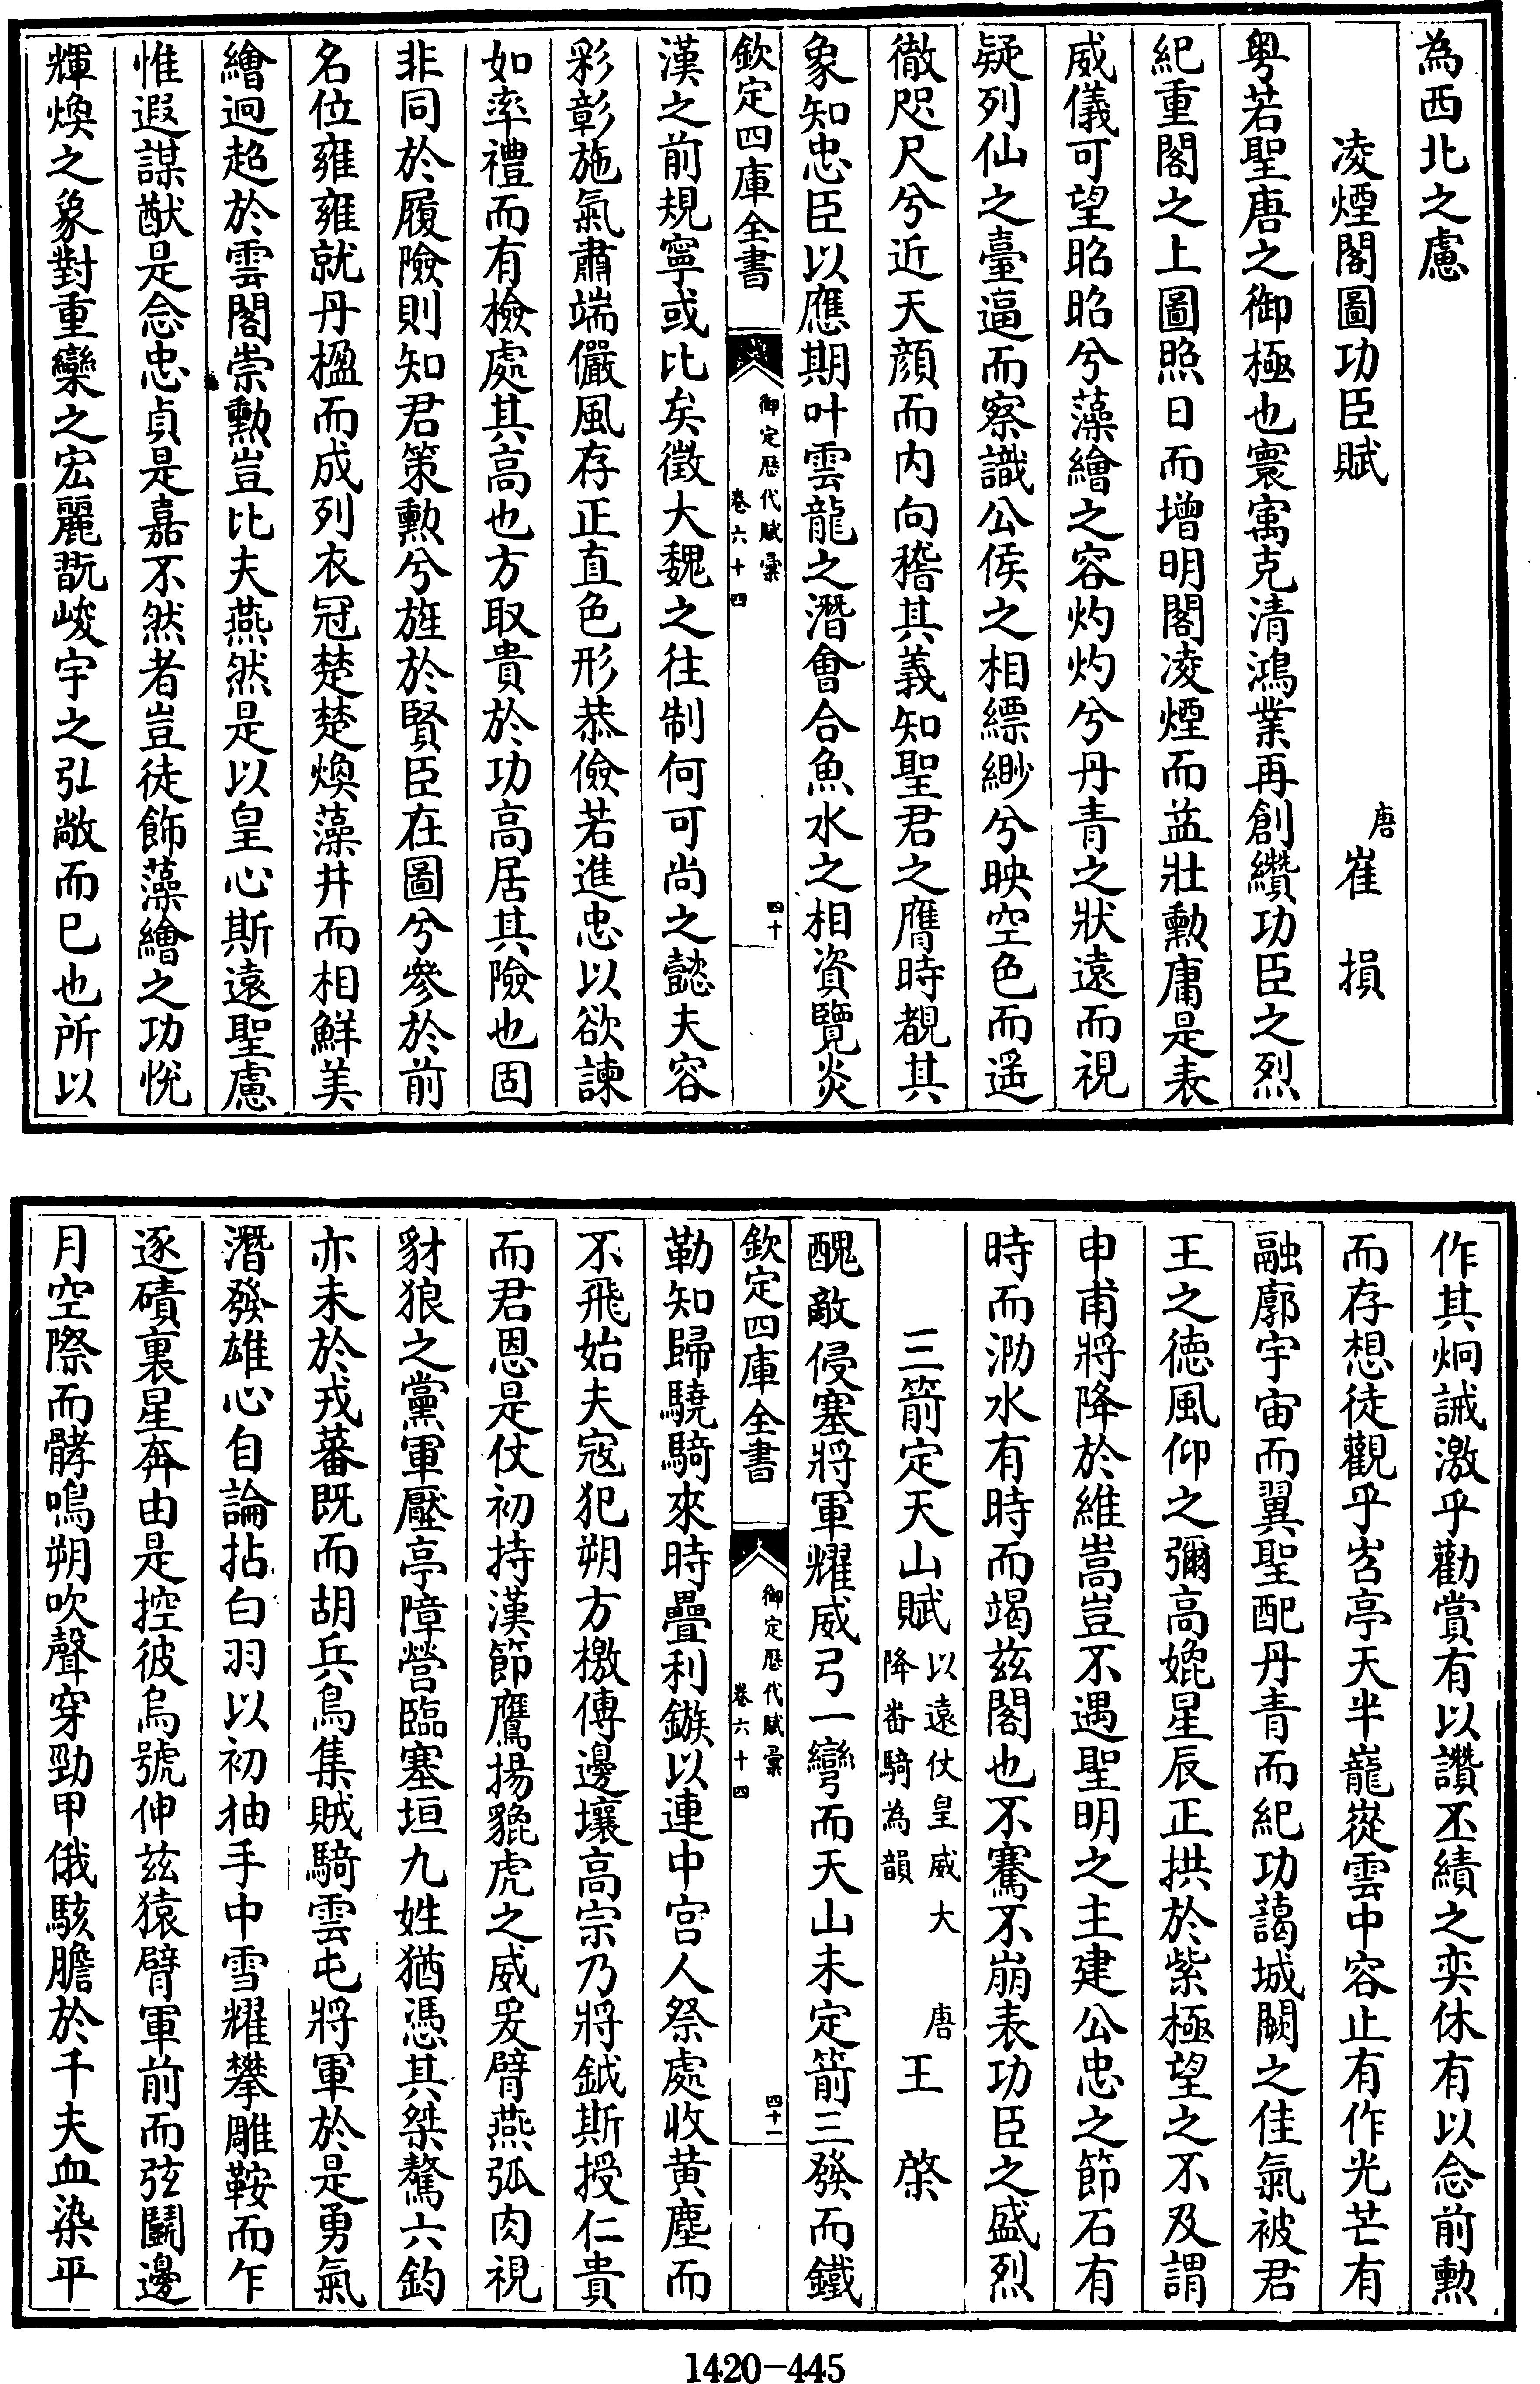 為西北之慮
凌煙閣圖功臣賦　唐崔損
粤若聖唐之御極也寰㝢克清鴻業再創纘功臣之烈
紀重閣之上圖照日而增明閣凌煙而益壯勲庸是表
威儀可望昭昭兮藻繪之容灼灼兮丹青之狀遠而視
疑列仙之臺逼而察識公侯之相縹緲兮映空色而遥
徹咫尺兮近天顔而内向稽其義知聖君之膺時覩其
象知忠臣以應期叶雲龍之潛會合魚水之相資覽炎
欽定四庫全書　御定歴代賦彙　卷六十四　四十
漢之前規寧或比矣徴大魏之往制何可尚之懿夫容
彩彰施氣肅端儼風存正直色形恭儉若進忠以欲諫
如率禮而有檢處其高也方取貴於功高居其險也固
非同於履險則知君策勲兮旌於賢臣在圖兮參於前
名位雍雍就丹楹而成列衣冠楚楚煥藻井而相鮮美
繪迥超於雲閣崇勲豈比夫燕然是以皇心斯遠聖慮
惟遐謀猷是念忠貞是嘉不然者豈徒飾藻繪之功恱
輝煥之象對重欒之宏麗翫峻宇之弘敞而已也所以
作其炯誡激乎勸賞有以讚丕績之奕休有以念前勲
而存想徒觀乎岧亭天半巃嵸雲中容止有作光芒有
融廓宇宙而翼聖配丹青而紀功藹城闕之佳氣被君
王之徳風仰之彌高媲星辰正拱於紫極望之不及謂
申甫將降於維嵩豈不遇聖明之主建公忠之節石有
時而泐水有時而竭兹閣也不騫不崩表功臣之盛烈
三箭定天山賦　以遠仗皇威大降畨騎為韻　唐王棨
醜敵侵塞將軍耀威弓一彎而天山未定箭三發而鐵
欽定四庫全書　御定歴代賦彙　卷六十四　四十一
勒知歸驍騎來時疊利鏃以連中宫人祭處收黄塵而
不飛始夫宼犯朔方檄傳邊壤高宗乃將鉞斯授仁貴
而君恩是仗初持漢節鷹揚貔虎之威爰臂燕弧肉視
豺狼之黨軍壓亭障營臨塞垣九姓猶憑其桀驁六鈞
亦未於戎蕃既而胡兵鳥集賊騎雲屯將軍於是勇氣
潛發雄心自論拈白羽以初抽手中雪耀攀雕鞍而乍
逐磧裏星奔由是控彼烏號伸兹猿臂軍前而弦鬭邊
月空際而髇鳴朔吹聲穿勁甲俄駭膽於千夫血染平
1420-445